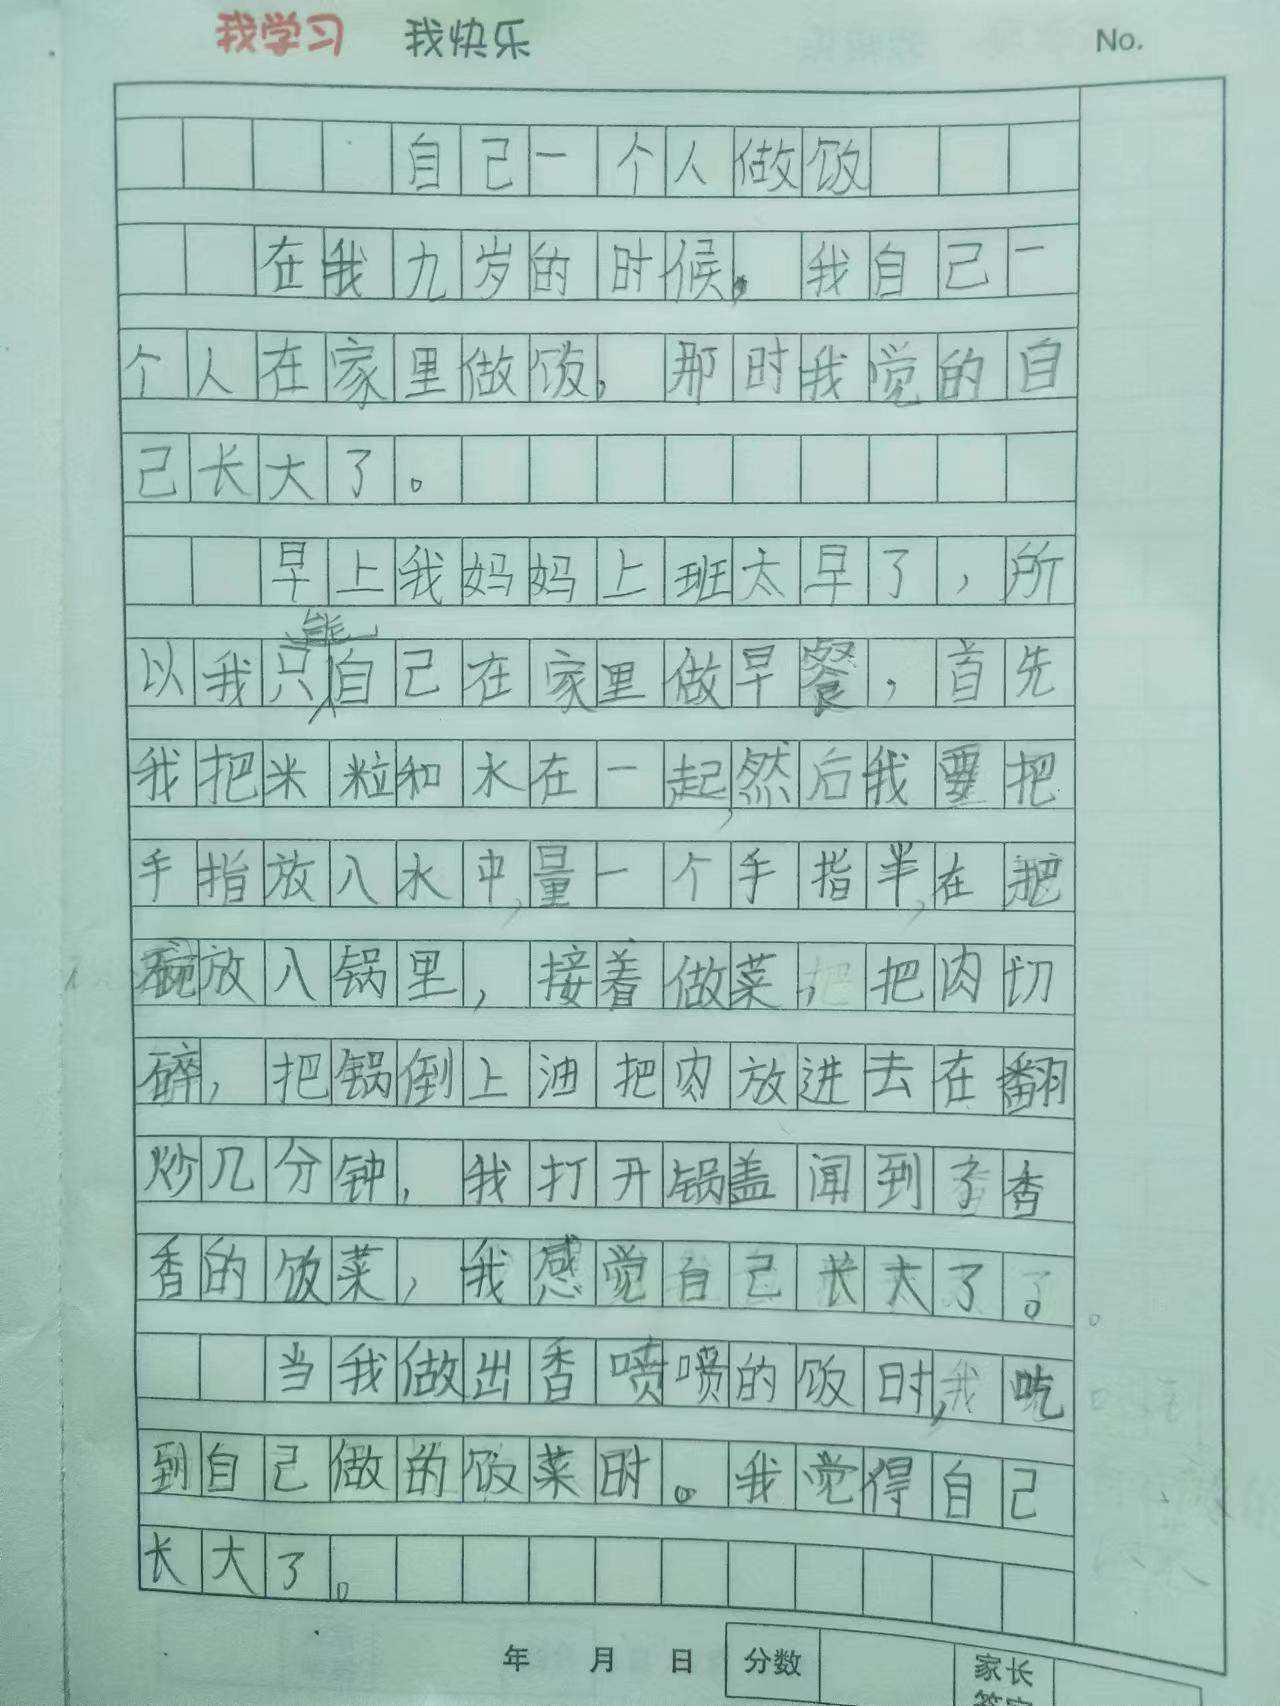 我学习 我快乐 No.
自己一个人做饭
在我九岁的时候。我自己一
个人在家里做饭，那时我觉的自
己长大了。
早上我妈妈上班太早了，所
以我只能自己在家里做早餐，首先
我把米粒和水在一起，然后我要把
手指放八水中，量一个手指半，在把
碗放八锅里，接着做菜，把把肉切
碎，把锅倒上油把肉放进去在翻
炒几分钟，我打开锅盖闻到了香
香的饭菜，我感觉自己长大了了。
当我做出香喷喷的饭时，我吃
到自己做的饭菜时。我觉得自己
长大了。
年 月 日 分数 家长